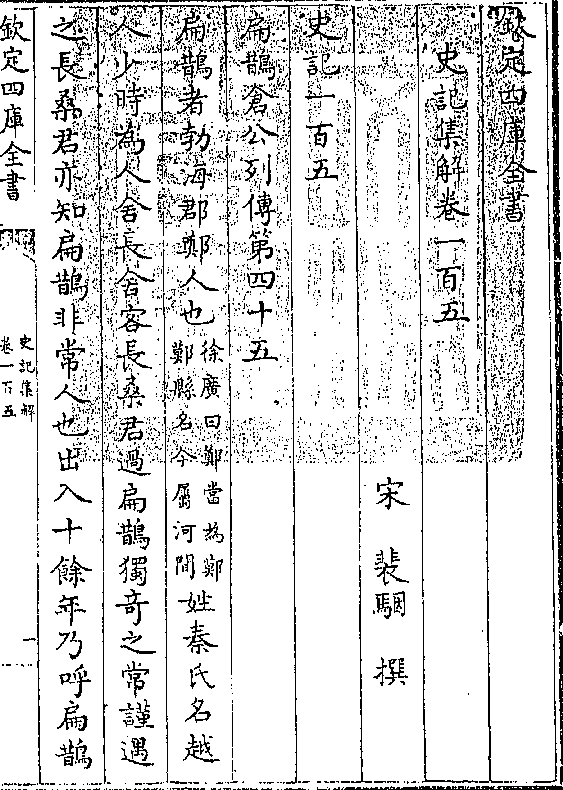 欽定四庫全書
史記集解卷一百五
宋 裴駰 撰
史記一百五
扁鵲倉公列傳第四十五
扁鵲者勃海郡鄭人也徐廣曰鄭當為鄚鄚縣名今屬河間姓秦氏名越
人少時為人舍長舍客長桑君過扁鵲獨奇之常謹遇
之長桑君亦知扁鵲非常人也出入十餘年乃呼扁鵲
欽定四庫全書
史記集解
卷一百五
一